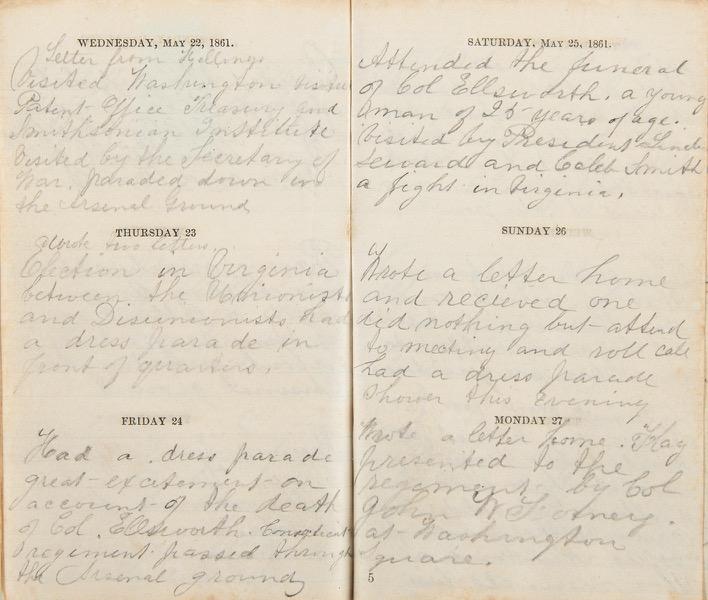 WEDNESDAY, MAY 22, 1861.
Letter from
Visited Washington visited
Patent Office Treasury and
Smithsonian Institute
Visited by the Secretary of
War. paraded down in
the Arsenal Ground
THURSDAY 23
Wrote two letters.
Election in Virginia
between the Unionists
and Disunionists had
a dress parade in
front of quarters.
FRIDAY 24
Had a dress parade
great excitement on
account of the death
of Col. Ellsworth. Connecticut
regiment passed through
the Arsenal ground
SATURDAY, MAY 25, 1861.
Attended the funeral
of Col Ellsworth. a young
man of 25 years of age.
Visited by President Lincoln
Seward and Caleb Smith
a fight in Virginia.
SUNDAY 26
Wrote a letter home
and recieved one
did nothing but attend
to meeting and roll call
had a dress parade
Shower this Evening
MONDAY 27
Wrote a letter home. Flag
presented to the
regiment by Col
John W
at Washington
Square.
5